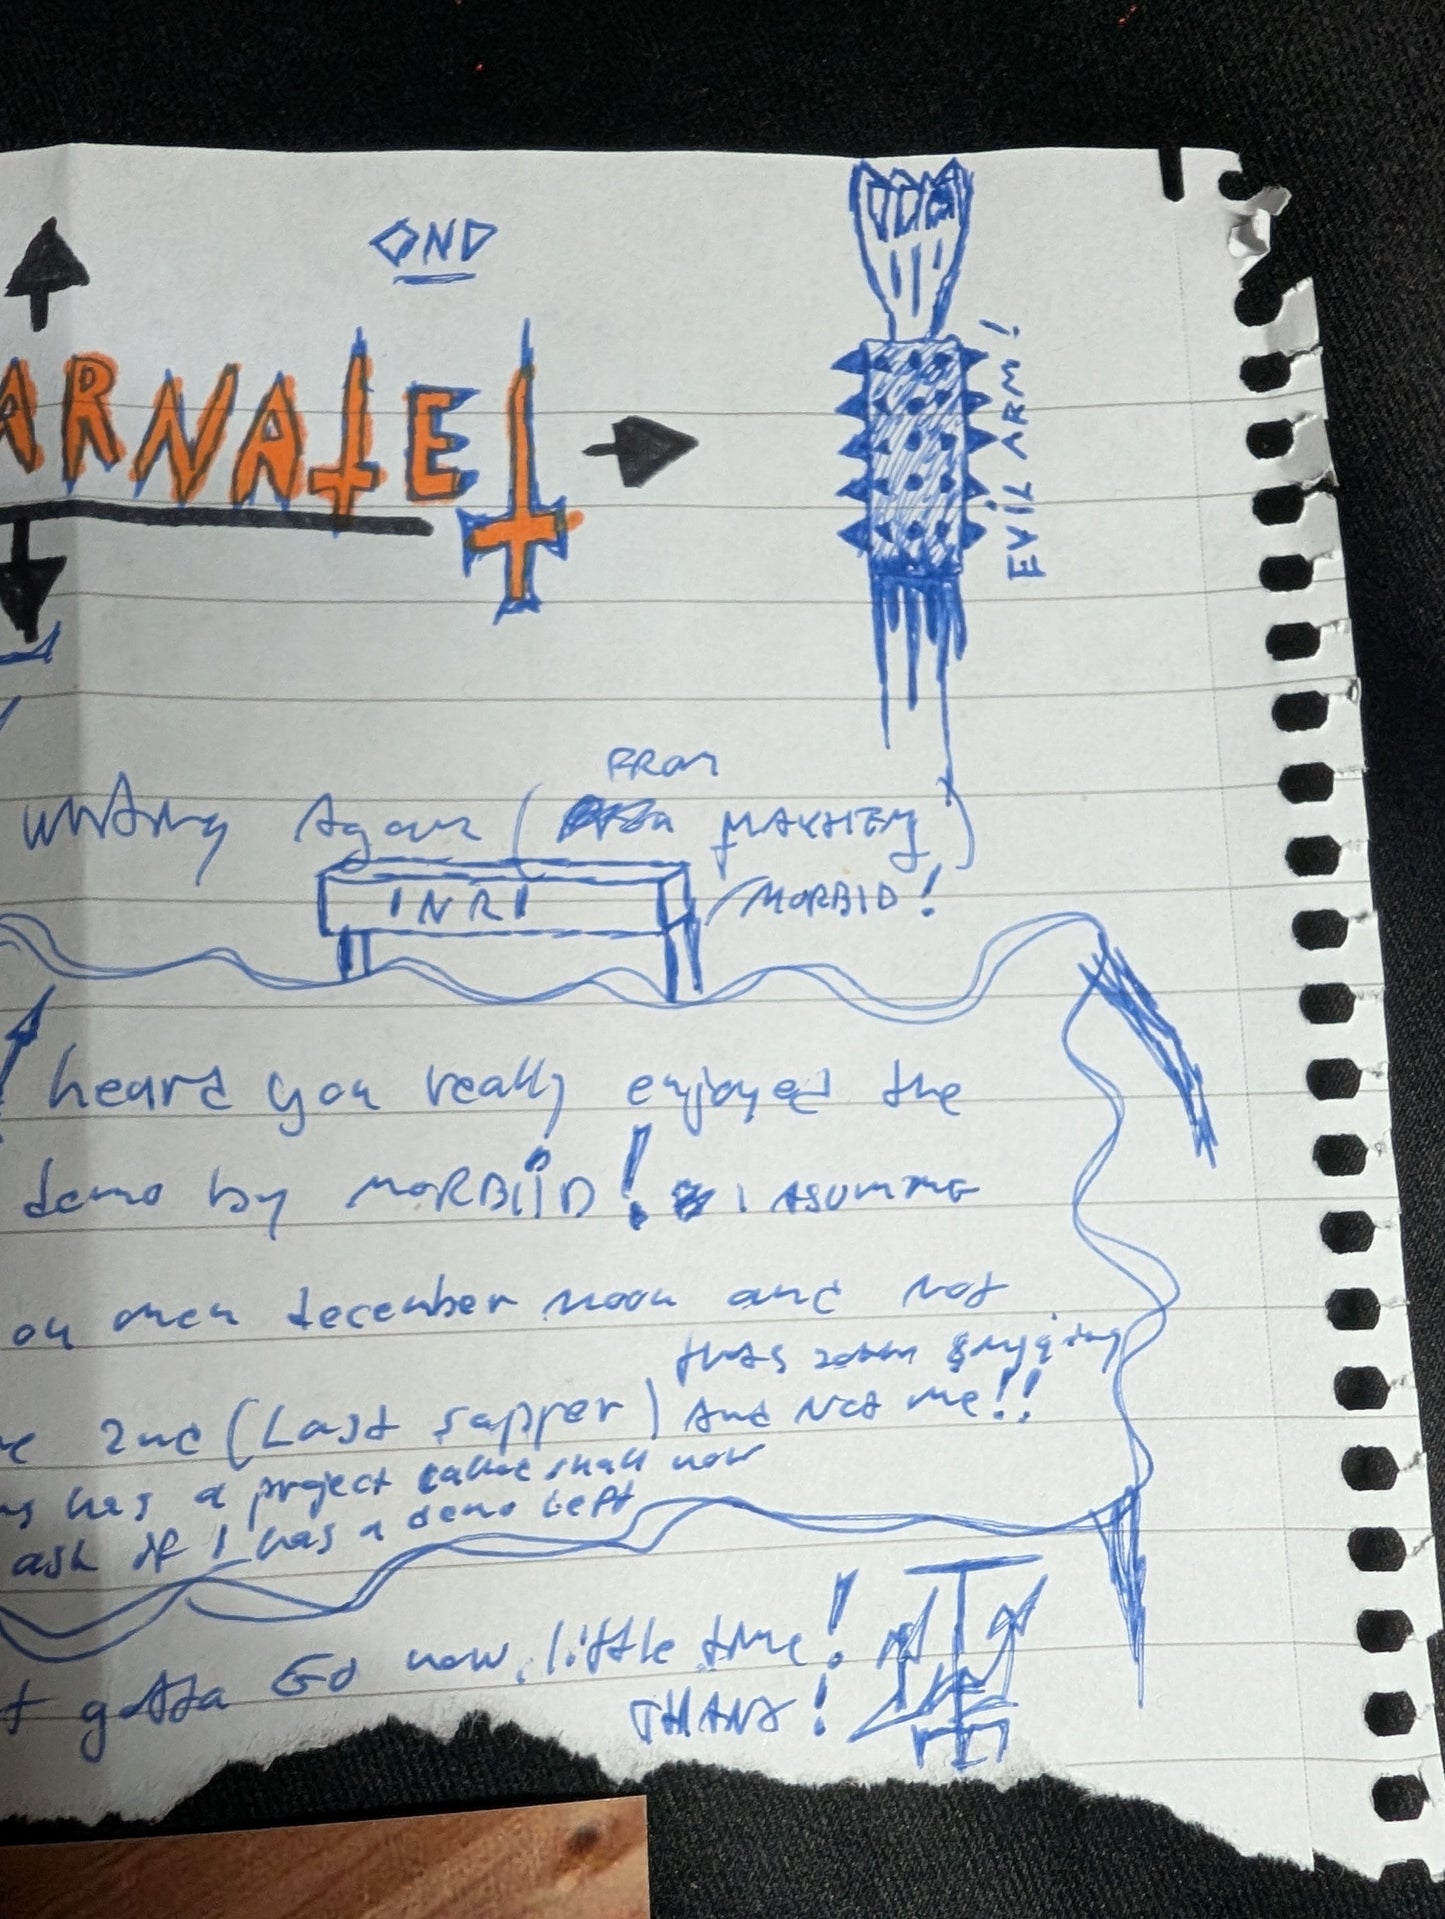 OND
ARNATE
EVIL ARM!
FROM
writing Again ( MAYHEM )
INRI
/MORBID!
heard you really enjoyed the
demo by MORBiiD! I ASUMME
on men december moon and not
thats
2nd (Last supper) And Not me!!
has a project called shall now
ask if I has a demo left
gotta Go now, little time!
THANX!